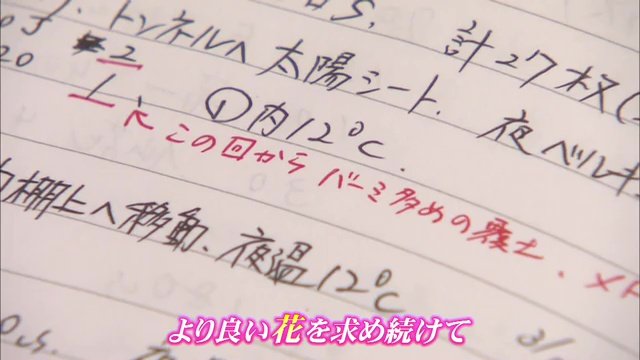 計27枚
トンネルへ 太陽シート. 夜ベルキ
20 2
1 ①内12℃.
この回から バーミ多めの覆土.
棚上へ移動、夜温12℃
より良い花を求め続けて